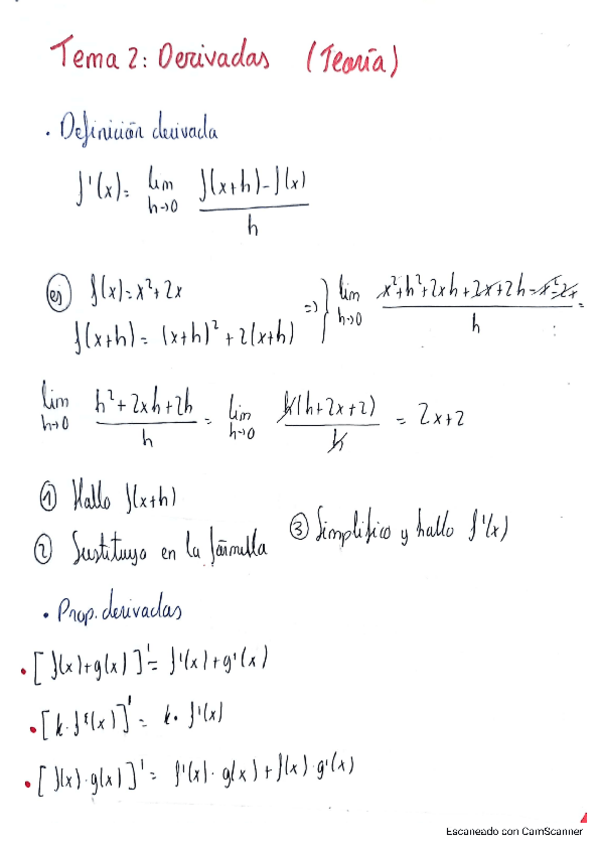 Tema 2: Derivadas (Teoría)
· Definición derivada
f'(x) = lim h→0 (f(x+h) - f(x)) / h
ej f(x) = x² + 2x
f(x+h) = (x+h)² + 2(x+h) } => lim h→0 (x² + h² + 2xh + 2x + 2h - x² - 2x) / h =
lim h→0 (h² + 2xh + 2h) / h = lim h→0 h(h + 2x + 2) / h = 2x + 2
① Hallo f(x+h)
② Sustituyo en la fórmula ③ Simplifico y hallo f'(x)
· Prop. derivadas
· [f(x) + g(x)]' = f'(x) + g'(x)
· [k · f(x)]' = k · f'(x)
· [f(x) · g(x)]' = f'(x) · g(x) + f(x) · g'(x)
Escaneado con CamScanner